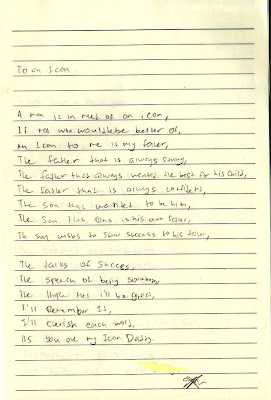 To an Icon
A man is in need of an icon,
If not who would the better of,
An Icon to me is my father,
The father that is always strong,
The father that always wanted the best for his child,
The father that is always confident,
The Son that wanted to be him,
The Son that is his own
The son wishes to show success to his
The talks of success,
The speech of being somebody
The that i'll be great,
I'll Remember It,
I'll cherish each word,
you are my Icon Daddy.